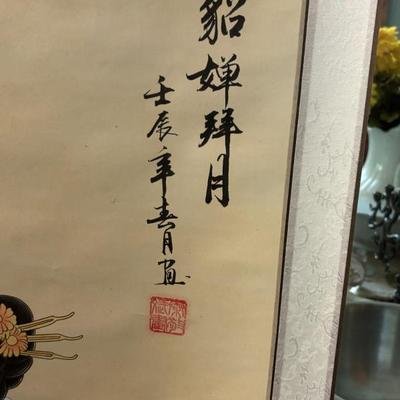 貂婵拜月
壬辰年春月画